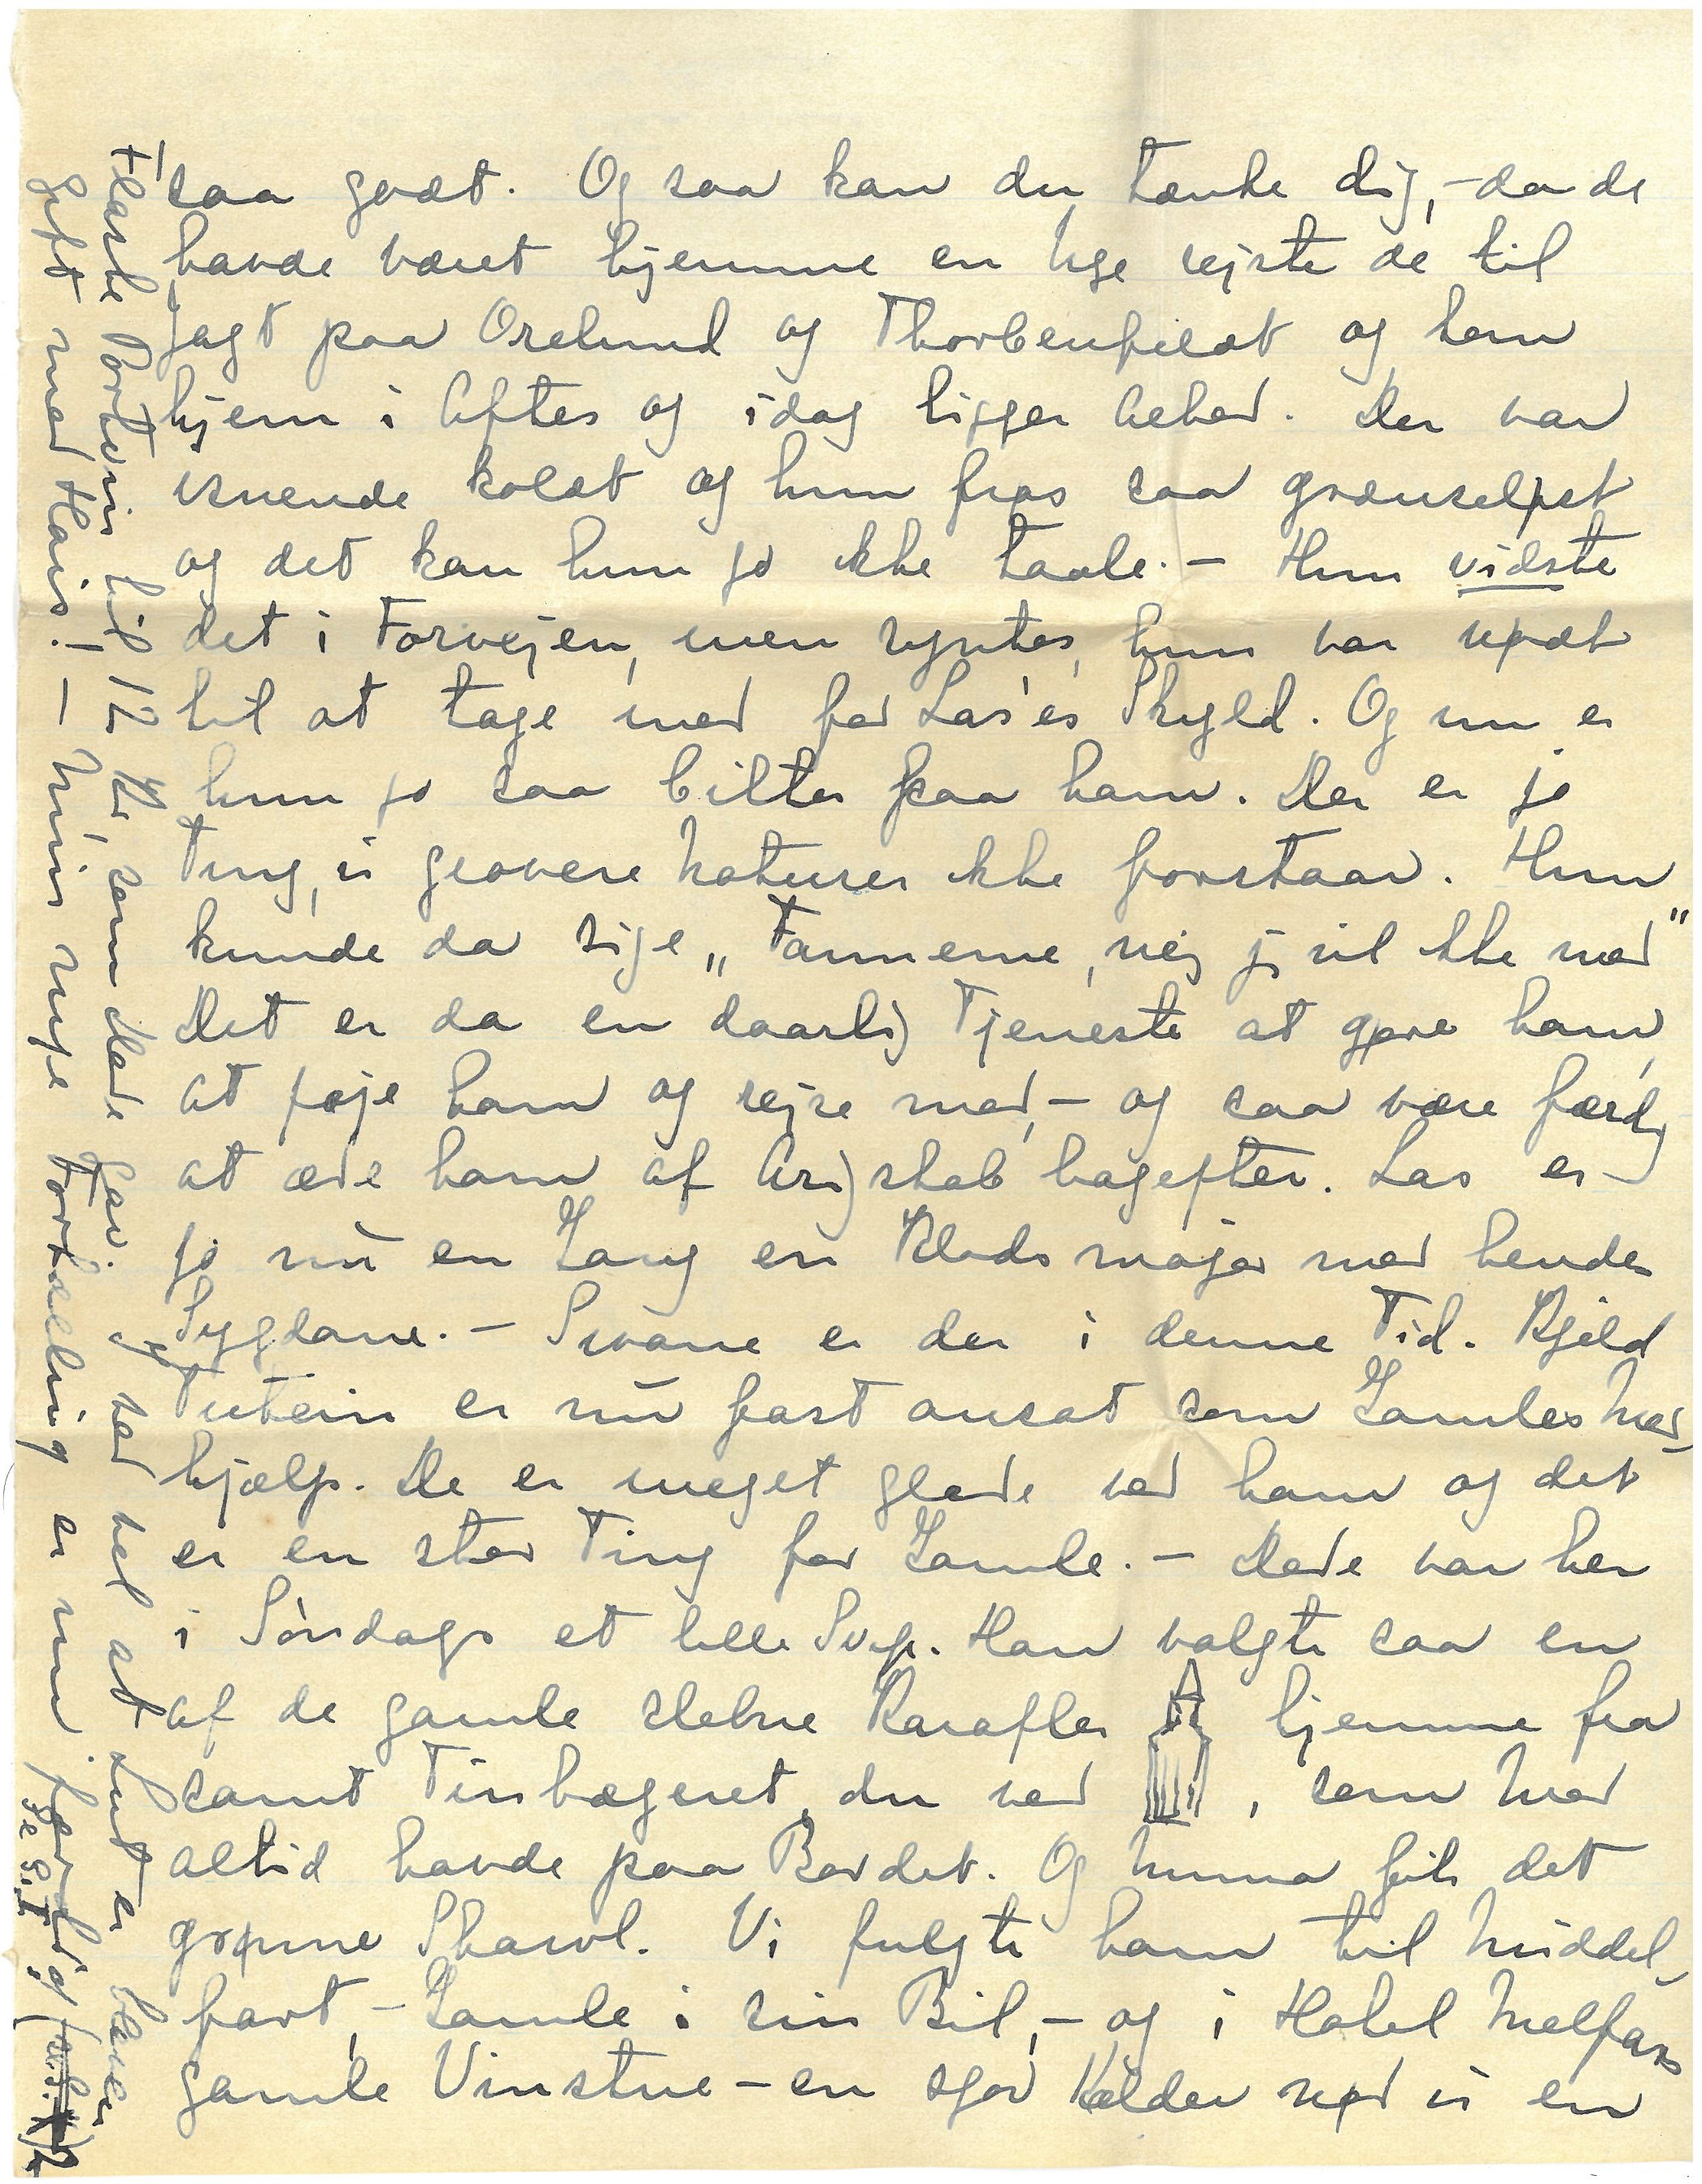 saa godt. Og saa kan du tænke dig, – da de
havde været hjemme en Uge rejste de til
Jagt paa Orelund og Thorbenfeldt og kom
hjem i Aftes og idag ligger Aebad. Der var
isnende koldt og hun frøs saa grænseløst
og det kan hun jo ikke taale. – Hun vidste
det i Forvejen, men syntes, hun var nødt
til at tage med for Las'es Skyld. Og nu er
hun jo saa bitter paa ham. Der er jo
Ting, vi grovere Naturer ikke forstaar. Hun
kunde da sige „Fanneme, nej jeg vil ikke med"
Det er da en daarlig Tjeneste at gøre ham,
at føje ham og rejse med, – og saa være færdig
at æde ham af Arigskab bagefter. Las er
jo nu en Gang en Klodsmajor med hendes
Sygdome. – Swane er der i denne Tid. Kjeld
Tutein er nu fast ansat som Gamles Med-
hjælp. De er meget glade ved ham og det
er en stor Ting for Gamle. – Dede var her
i Søndags et lille Svip. Han valgte saa en
af de gamle slebne Karafler hjemme fra
samt Tinbægeret, du ved , som Mor
altid havde paa Bordet. Og Mumma fik det
grønne Shawl. Vi fulgte ham til Middel-
fart, – Gamle i sin Bil, – og i Hotel Melfars
gamle Vinstue – en sjov Kælder nød vi en
Flaske Portvin til 12 Kr, som Dede gav. og har vel at Lut er bleven
gift med Hans. – – Min nye Fortælling er nu færdig